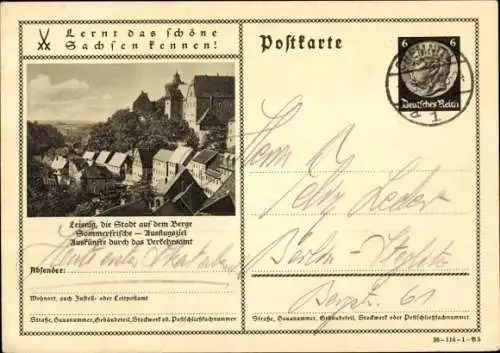 Lernt das schöne
Sachsen kennen!
Postkarte
6 6
Deutsches Reich
Leisnig, die Stadt auf dem Berge
Sommerfrische – Ausflugsziel
Auskünfte durch das Verkehrsamt
Absender:
Wohnort, auch Zustell- oder Leitpostamt
Straße, Hausnummer, Gebäudeteil, Stockwerk od. Postschließfachnummer
Herrn
Leder
Berlin-Steglitz
Bergstr. 61
Straße, Hausnummer, Gebäudeteil, Stockwerk oder Postschließfachnummer